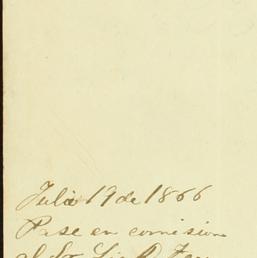 Julio 19 de 1866
Pase en comision
al Sor Lic D